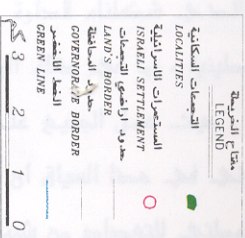 مفتاح الخريطة
LEGEND
التجمعات السكانية
LOCALITIES
المستعمرات الاسرائيلية
ISRAELI SETTLEMENT
حدود اراضي التجمعات
LAND'S BORDER
حدود المحافظة
GOVERNORATE BORDER
الخط الأخضر
GREEN LINE
3 2 1 0
كم